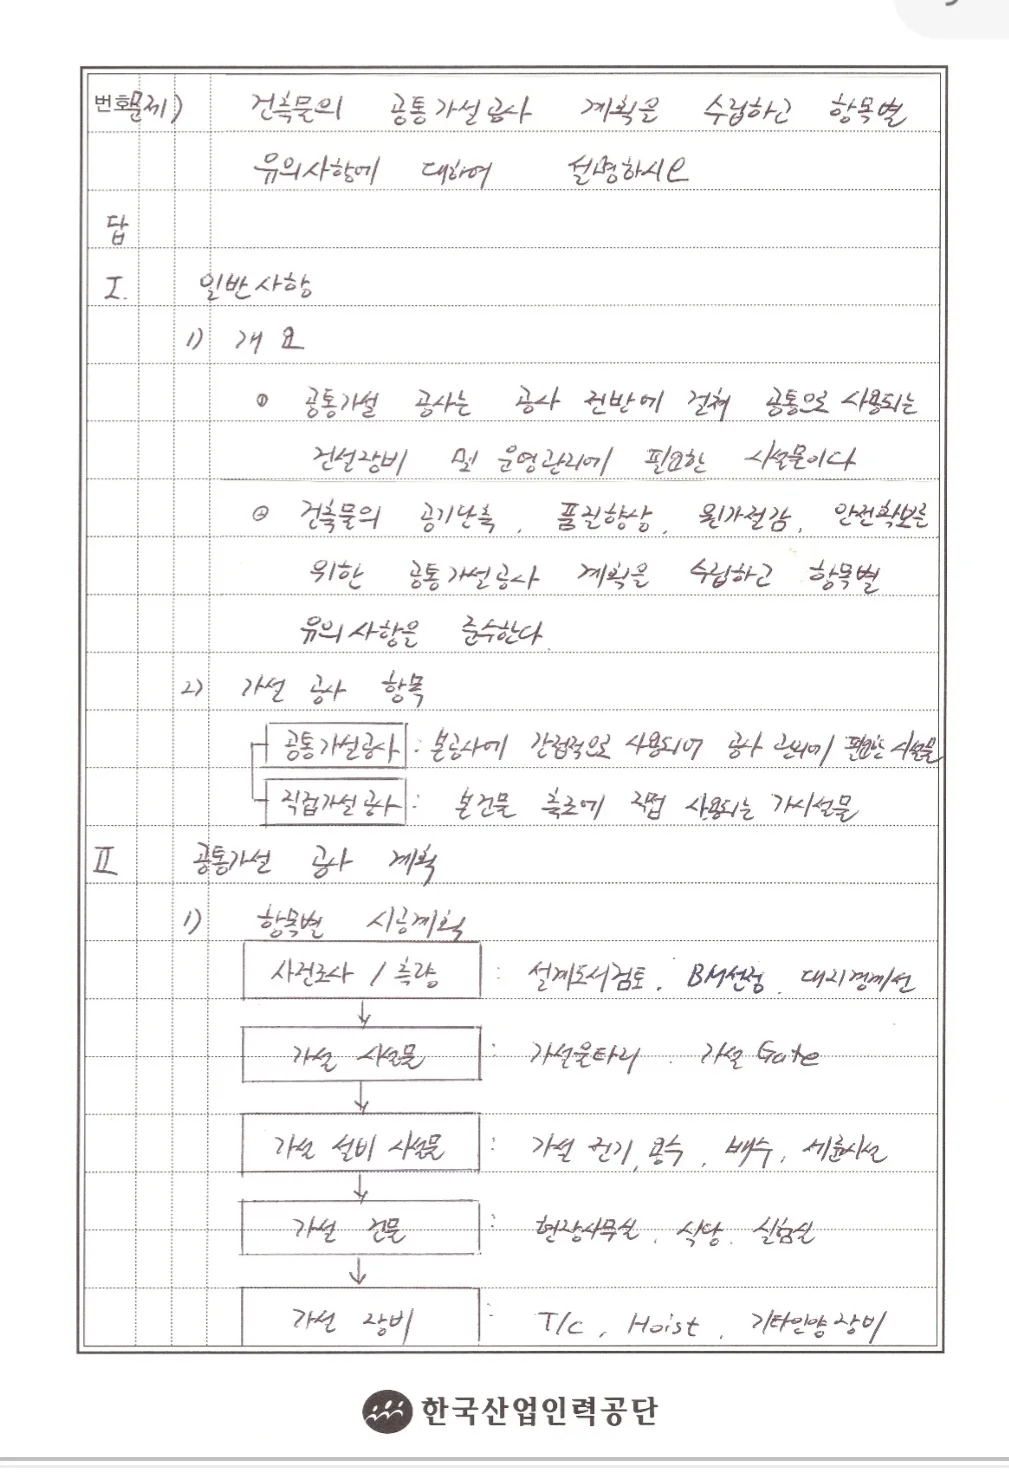 번호 문제) 건축물의 공통가설공사 계획을 수립하고 항목별
유의사항에 대하여 설명하시오
답
I. 일반사항
1) 개요
① 공통가설 공사는 공사 전반에 걸쳐 공통으로 사용되는
건설장비 및 운영관리에 필요한 시설물이다
② 건축물의 공기단축, 품질향상, 원가절감, 안전확보를
위한 공통가설공사 계획을 수립하고 항목별
유의사항을 준수한다.
2) 가설 공사 항목
공통가설공사 : 본공사에 간접적으로 사용되어 공사 관리에 필요한 시설물
직접가설공사 : 본건물 축조에 직접 사용되는 가시설물
II 공통가설 공사 계획
1) 항목별 시공계획
사전조사 / 측량 : 설계도서검토, BM선정, 대지경계선
↓
가설 시설물 : 가설울타리, 가설 Gate
↓
가설 설비 시설물 : 가설 전기, 용수, 배수, 세륜시설
↓
가설 건물 : 현장사무실, 식당, 실험실
↓
가설 장비 : T/C, Hoist, 기타인양장비
한국산업인력공단